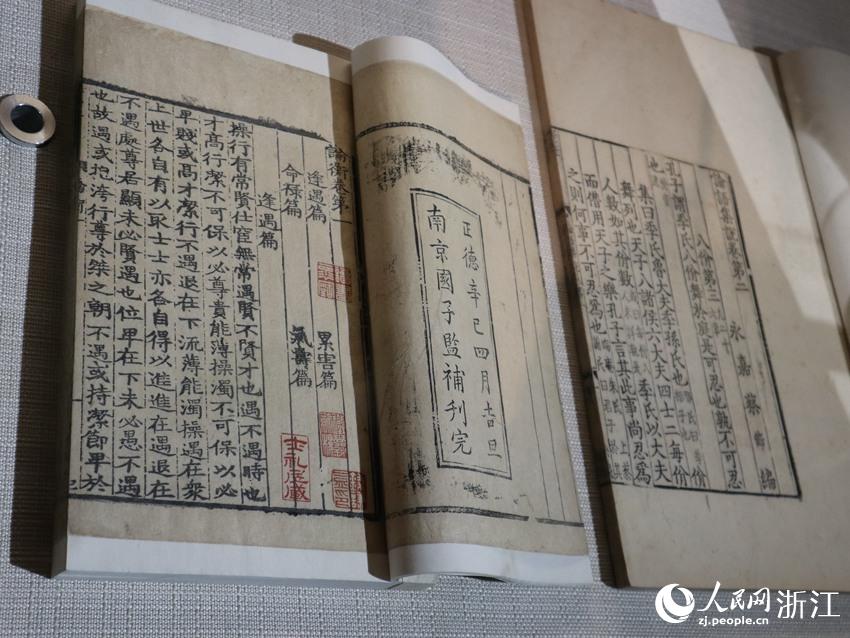 論衡卷第一
逢遇篇 累害篇
命祿篇 氣壽篇
逢遇篇
操行有常賢仕宦無常遇賢不賢才也遇不遇時也
才高行潔不可保以必尊貴能薄操濁不可保以必
卑賤或高才潔行不遇退在下流薄能濁操遇在衆
上世各自有以取士士亦各自得以進進在遇退在
不遇處尊居顯未必賢遇也位卑在下未必愚不遇
也故遇或抱洿行尊於桀之朝不遇或持潔節卑於
士礼居藏
正德辛巳四月吉旦
南京國子監補刊完
論語集說卷第二
永嘉蔡節編
八佾第三
孔子謂季氏八佾舞於庭是可忍也孰不可忍
也
集曰季氏魯大夫季孫氏也
舞列也天子八諸侯六大夫四士二每佾
人數如其佾數 季氏以大夫
而僭用天子之樂孔子言其此事尚忍爲
之則何事不可忍爲也
人民网 浙江
zj.people.cn